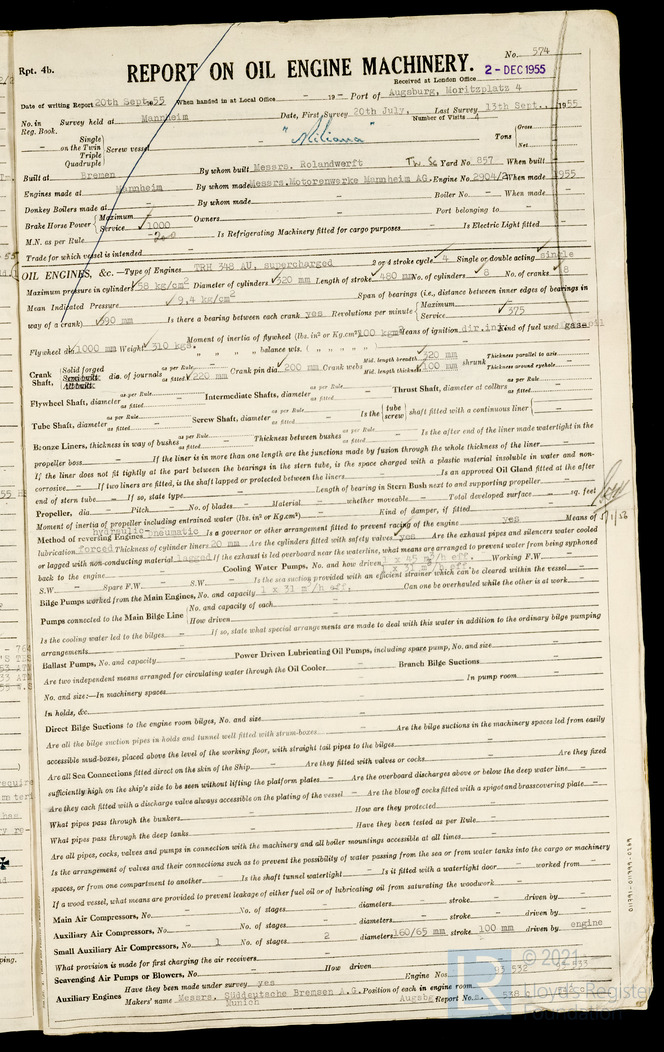 Rpt. 4b.
No. 574
REPORT ON OIL ENGINE MACHINERY.
Received at London Office
2 - DEC 1955
Date of writing Report 20th Sept. 1955 When handed in at Local Office - 19 - Port of Augsburg, Moritzplatz 4
No. in Reg. Book. Survey held at Mannheim Date, First Survey 20th July, Last Survey 13th Sept., 1955
Number of Visits 4
- on the Single Twin Triple Quadruple Screw vessel
Tons Gross Net
Built at Bremen By whom built Messrs. Rolandwerft Tw. Sc Yard No. 857 When built
Engines made at Mannheim By whom made Messrs. Motorenwerke Mannheim AG. Engine No. 2904/2 When made 1955
Donkey Boilers made at - By whom made - Boiler No. - When made -
Brake Horse Power Maximum Service 1000 Owners Port belonging to
M.N. as per Rule 200 Is Refrigerating Machinery fitted for cargo purposes - Is Electric Light fitted -
Trade for which vessel is intended
OIL ENGINES, &c. —Type of Engines TRH 348 AU, supercharged 2 or 4 stroke cycle 4 Single or double acting single
Maximum pressure in cylinders 58 kg/cm2 Diameter of cylinders 320 mm Length of stroke 480 mm No. of cylinders 8 No. of cranks 8
Mean Indicated Pressure 9,4 kg/cm2 Span of bearings (i.e., distance between inner edges of bearings in
way of a crank) 390 mm Is there a bearing between each crank yes Revolutions per minute Maximum Service 375
Flywheel dia. 1000 mm Weight 310 kgs. Moment of inertia of flywheel (lbs. in2 or Kg.cm2) 100 kgm2 Means of ignition dir.inj. Kind of fuel used gasoil
" " " balance wts. ( " " " " )
Crank Shaft, Solid forged Semi built All built dia. of journals as per Rule as fitted 220 mm Crank pin dia. 200 mm Crank webs Mid. length breadth 320 mm Mid. length thickness 100 mm shrunk Thickness parallel to axis Thickness around eyehole
Flywheel Shaft, diameter as per Rule as fitted Intermediate Shafts, diameter as per Rule as fitted Thrust Shaft, diameter at collars as per Rule as fitted
Tube Shaft, diameter as per Rule as fitted Screw Shaft, diameter as per Rule as fitted Is the tube screw shaft fitted with a continuous liner
Bronze Liners, thickness in way of bushes as per Rule as fitted Thickness between bushes as per Rule as fitted Is the after end of the liner made watertight in the
propeller boss - If the liner is in more than one length are the junctions made by fusion through the whole thickness of the liner
If the liner does not fit tightly at the part between the bearings in the stern tube, is the space charged with a plastic material insoluble in water and non-
corrosive - If two liners are fitted, is the shaft lapped or protected between the liners - Is an approved Oil Gland fitted at the after
end of stern tube - If so, state type - Length of bearing in Stern Bush next to and supporting propeller
Propeller, dia - Pitch - No. of blades - Material - whether moveable - Total developed surface - sq. feet
Moment of inertia of propeller including entrained water (lbs. in2 or Kg.cm2) - Kind of damper, if fitted
Method of reversing Engines hydraulic-pneumatic Is a governor or other arrangement fitted to prevent racing of the engine yes Means of
lubrication forced Thickness of cylinder liners 20 mm Are the cylinders fitted with safety valves yes Are the exhaust pipes and silencers water cooled
or lagged with non-conducting material lagged If the exhaust is led overboard near the waterline, what means are arranged to prevent water from being syphoned
back to the engine - Cooling Water Pumps, No. and how driven 1 x 85 m3/h eff. Working F.W. -
1 x 31 m3/h eff.
S.W. - Spare F.W. - S.W. - Is the sea suction provided with an efficient strainer which can be cleared within the vessel
Bilge Pumps worked from the Main Engines, No. and capacity 1 x 31 m3/h eff. Can one be overhauled while the other is at work
Pumps connected to the Main Bilge Line No. and capacity of each How driven
Is the cooling water led to the bilges - If so, state what special arrangements are made to deal with this water in addition to the ordinary bilge pumping
arrangements
Ballast Pumps, No. and capacity Power Driven Lubricating Oil Pumps, including spare pump, No. and size
Are two independent means arranged for circulating water through the Oil Cooler Branch Bilge Suctions
No. and size:—In machinery spaces In pump room
In holds, &c.
Direct Bilge Suctions to the engine room bilges, No. and size
Are all the bilge suction pipes in holds and tunnel well fitted with strum-boxes Are the bilge suctions in the machinery spaces led from easily
accessible mud-boxes, placed above the level of the working floor, with straight tail pipes to the bilges
Are all Sea Connections fitted direct on the skin of the Ship Are they fitted with valves or cocks Are they fixed
sufficiently high on the ship's side to be seen without lifting the platform plates Are the overboard discharges above or below the deep water line
Are they each fitted with a discharge valve always accessible on the plating of the vessel Are the blow off cocks fitted with a spigot and brass covering plate
What pipes pass through the bunkers How are they protected
What pipes pass through the deep tanks Have they been tested as per Rule
Are all pipes, cocks, valves and pumps in connection with the machinery and all boiler mountings accessible at all times
Is the arrangement of valves and their connections such as to prevent the possibility of water passing from the sea or from water tanks into the cargo or machinery
spaces, or from one compartment to another Is the shaft tunnel watertight Is it fitted with a watertight door worked from
If a wood vessel, what means are provided to prevent leakage of either fuel oil or of lubricating oil from saturating the woodwork
Main Air Compressors, No. No. of stages diameters stroke driven by
Auxiliary Air Compressors, No. No. of stages diameters stroke driven by
Small Auxiliary Air Compressors, No. 1 No. of stages 2 diameters 160/65 mm stroke 100 mm driven by engine
What provision is made for first charging the air receivers
Scavenging Air Pumps or Blowers, No. How driven
Auxiliary Engines Have they been made under survey yes Engine Nos. 93 532
Makers' name Messrs. Süddeutsche Bremsen A.G. Munich Position of each in engine room
Augsbg Report No.s.
011791-011799-0269
LR © 2021
Lloyd's Register
Foundation